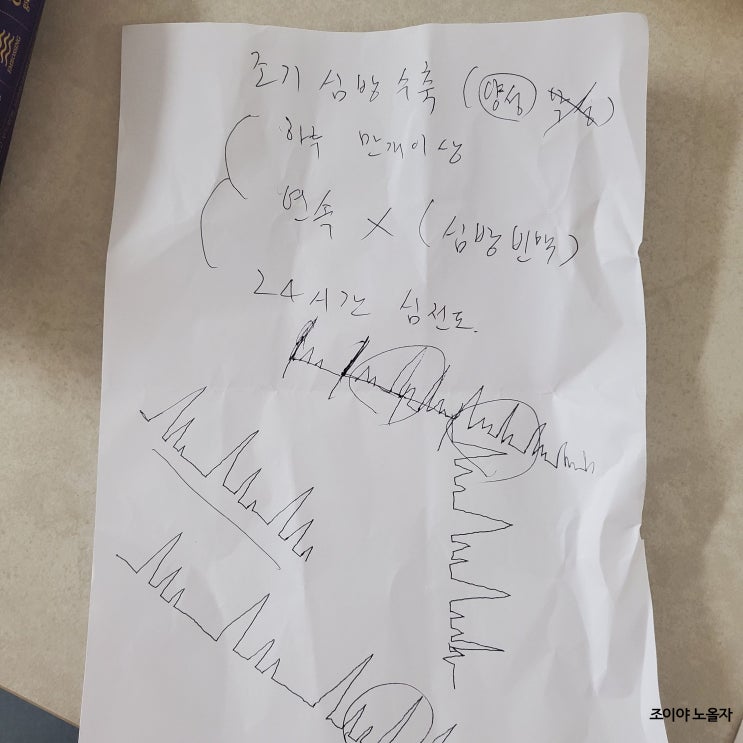 조기 심방수축 (양성 악성)
하루 만개이상
연속 X (심방빈맥)
24시간 심전도.
조이야 노올자